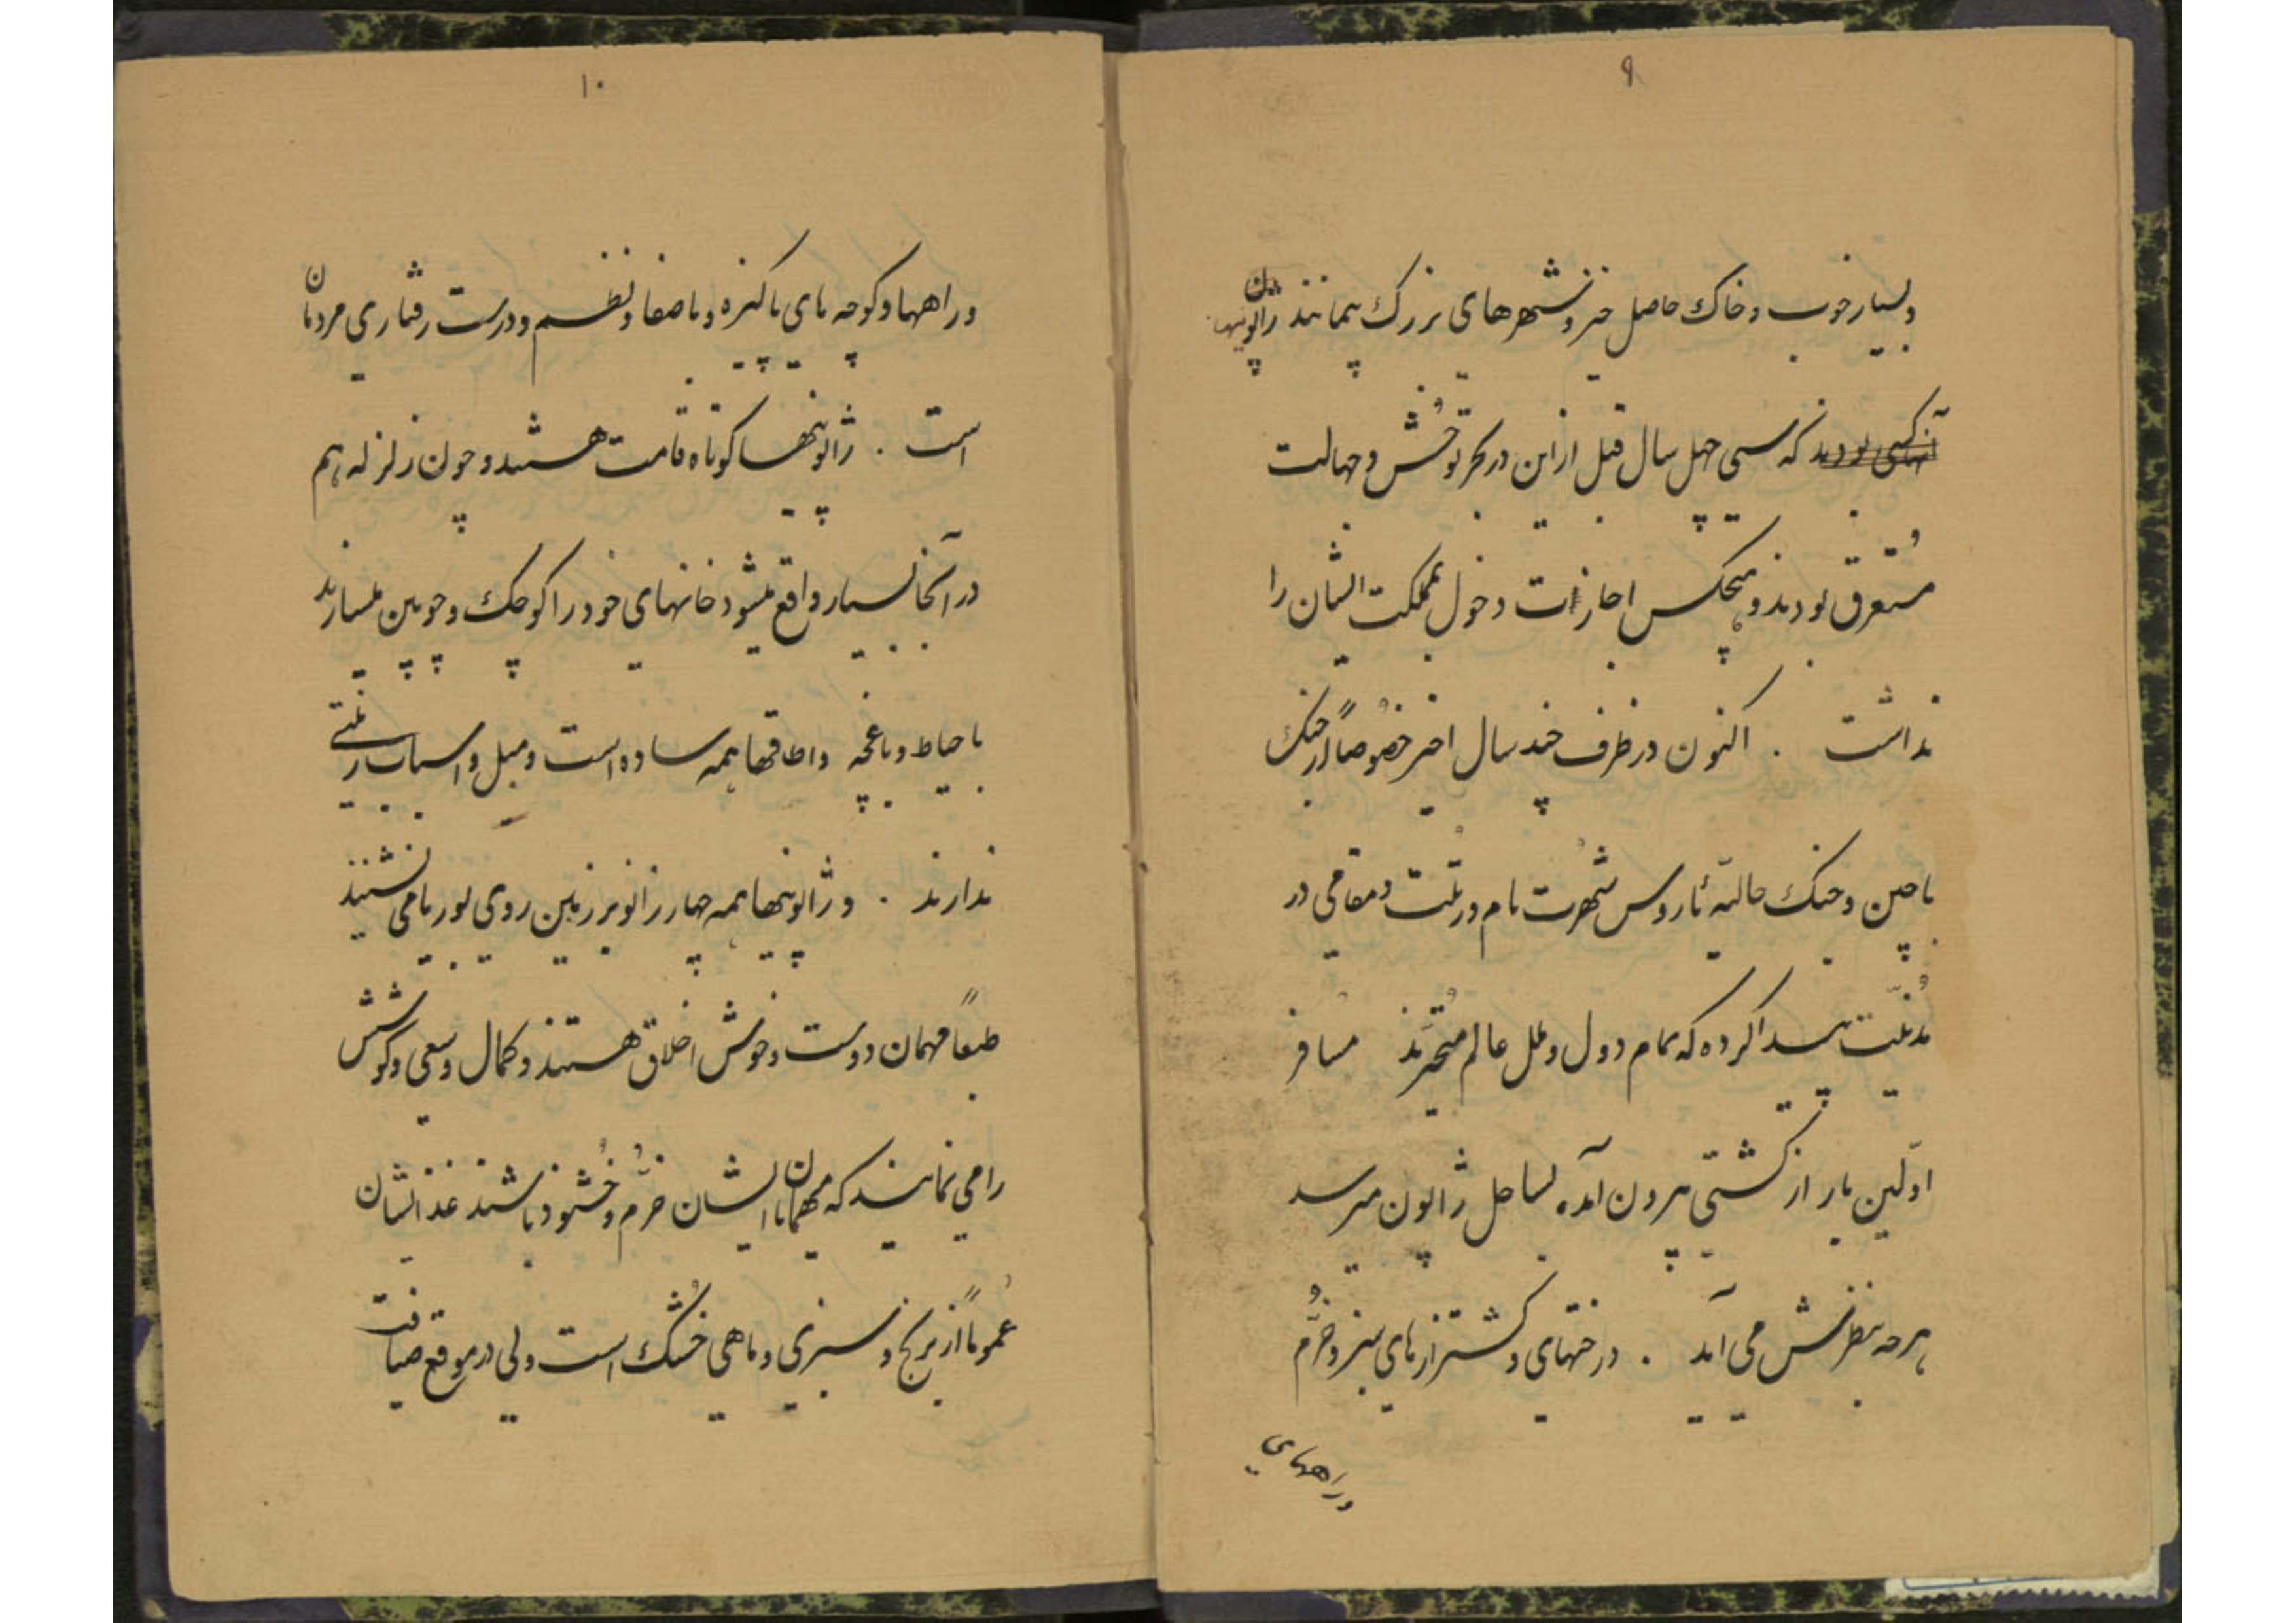 ۹
و بسیار خوب و خاک حاصل خیز و شهرهای بزرگ بیمانند ژاپونیها
آنکسی بودند که سی چهل سال قبل از این در بحر توحّش و جهالت
مُستغرق بودند و هیچکس اجازت دخول بمملکت ایشان را
نداشت . اکنون در ظرف چند سال اخیر خصُوصاً از جنگ
با چین و جنگ حالیّهٔ با روس شُهرت نام و رتبت و مقامی در
مدُنیّت پیدا کرده که تمام دول و ملل عالم متُحیّرند مسافر
اوّلین بار از کشتی بیرون آمده بساحل ژاپون میرسد
هر چه بنظرش می آید . درختهای و کشتزارهای سبز و خُرّم
و راههای
۱۰
و راهها و کوچه های پاکیزه و باصفا و نظم و درست رفتاری مردمان
است . ژاپونیها کوتاه قامت هستند و چون زلزله هم
در آنجا بسیار واقع میشود خانهای خود را کوچک و چوبین میسازند
با حیاط و باغچه و اطاقها همه ساده است و مبل و اسباب زینتی
ندارند . و ژاپونیها همه چهار زانو بر زمین روی بوریا می نشینند
طبعاً مهمان دوست و خوش اخلاق هستند و کمال و سعی و کوشش
را می نمایند که مهمانان ایشان خُرّم و خُشنود باشند غذایشان
عُموماً از برنج و سبزی و ماهی خُشک است ولی در موقع ضیافت